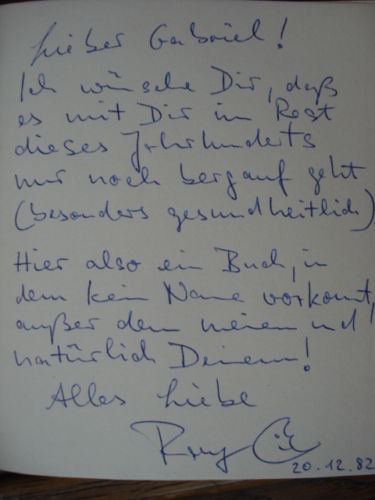 Lieber Gabriel!
Ich wünsche Dir, daß
es mit Dir im Rest
dieses Jahrhunderts
nur noch bergauf geht
(besonders gesundheitlich)
Hier also ein Buch, in
dem kein Name vorkommt,
außer dem meinen und
natürlich Deinem!
Alles Liebe
20.12.82